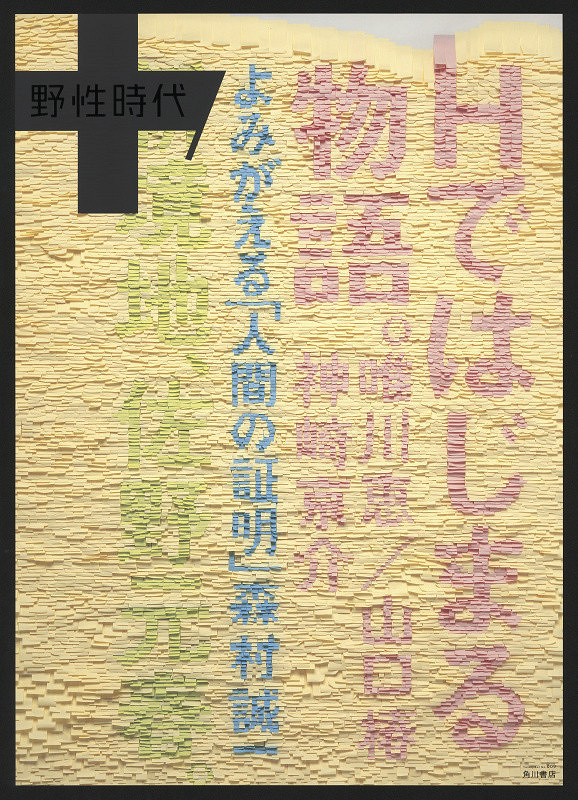 野性時代
Hではじまる
物語。唯川恵／山口椿
神崎京介
よみがえる「人間の証明」森村誠一
境地、佐野元春
角川書店